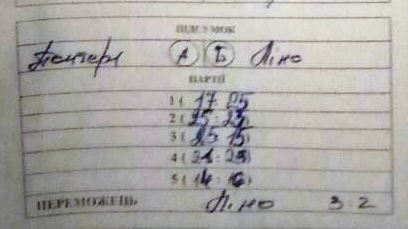 ПІДСУМОК
Пантери А Б Ліно
ПАРТІЇ
1 ( 17 : 25
2 ( 25 : 23 )
3 ( 25 : 15 )
4 ( 21 : 25 )
5 ( 14 : 16 )
ПЕРЕМОЖЕЦЬ Ліно 3 : 2